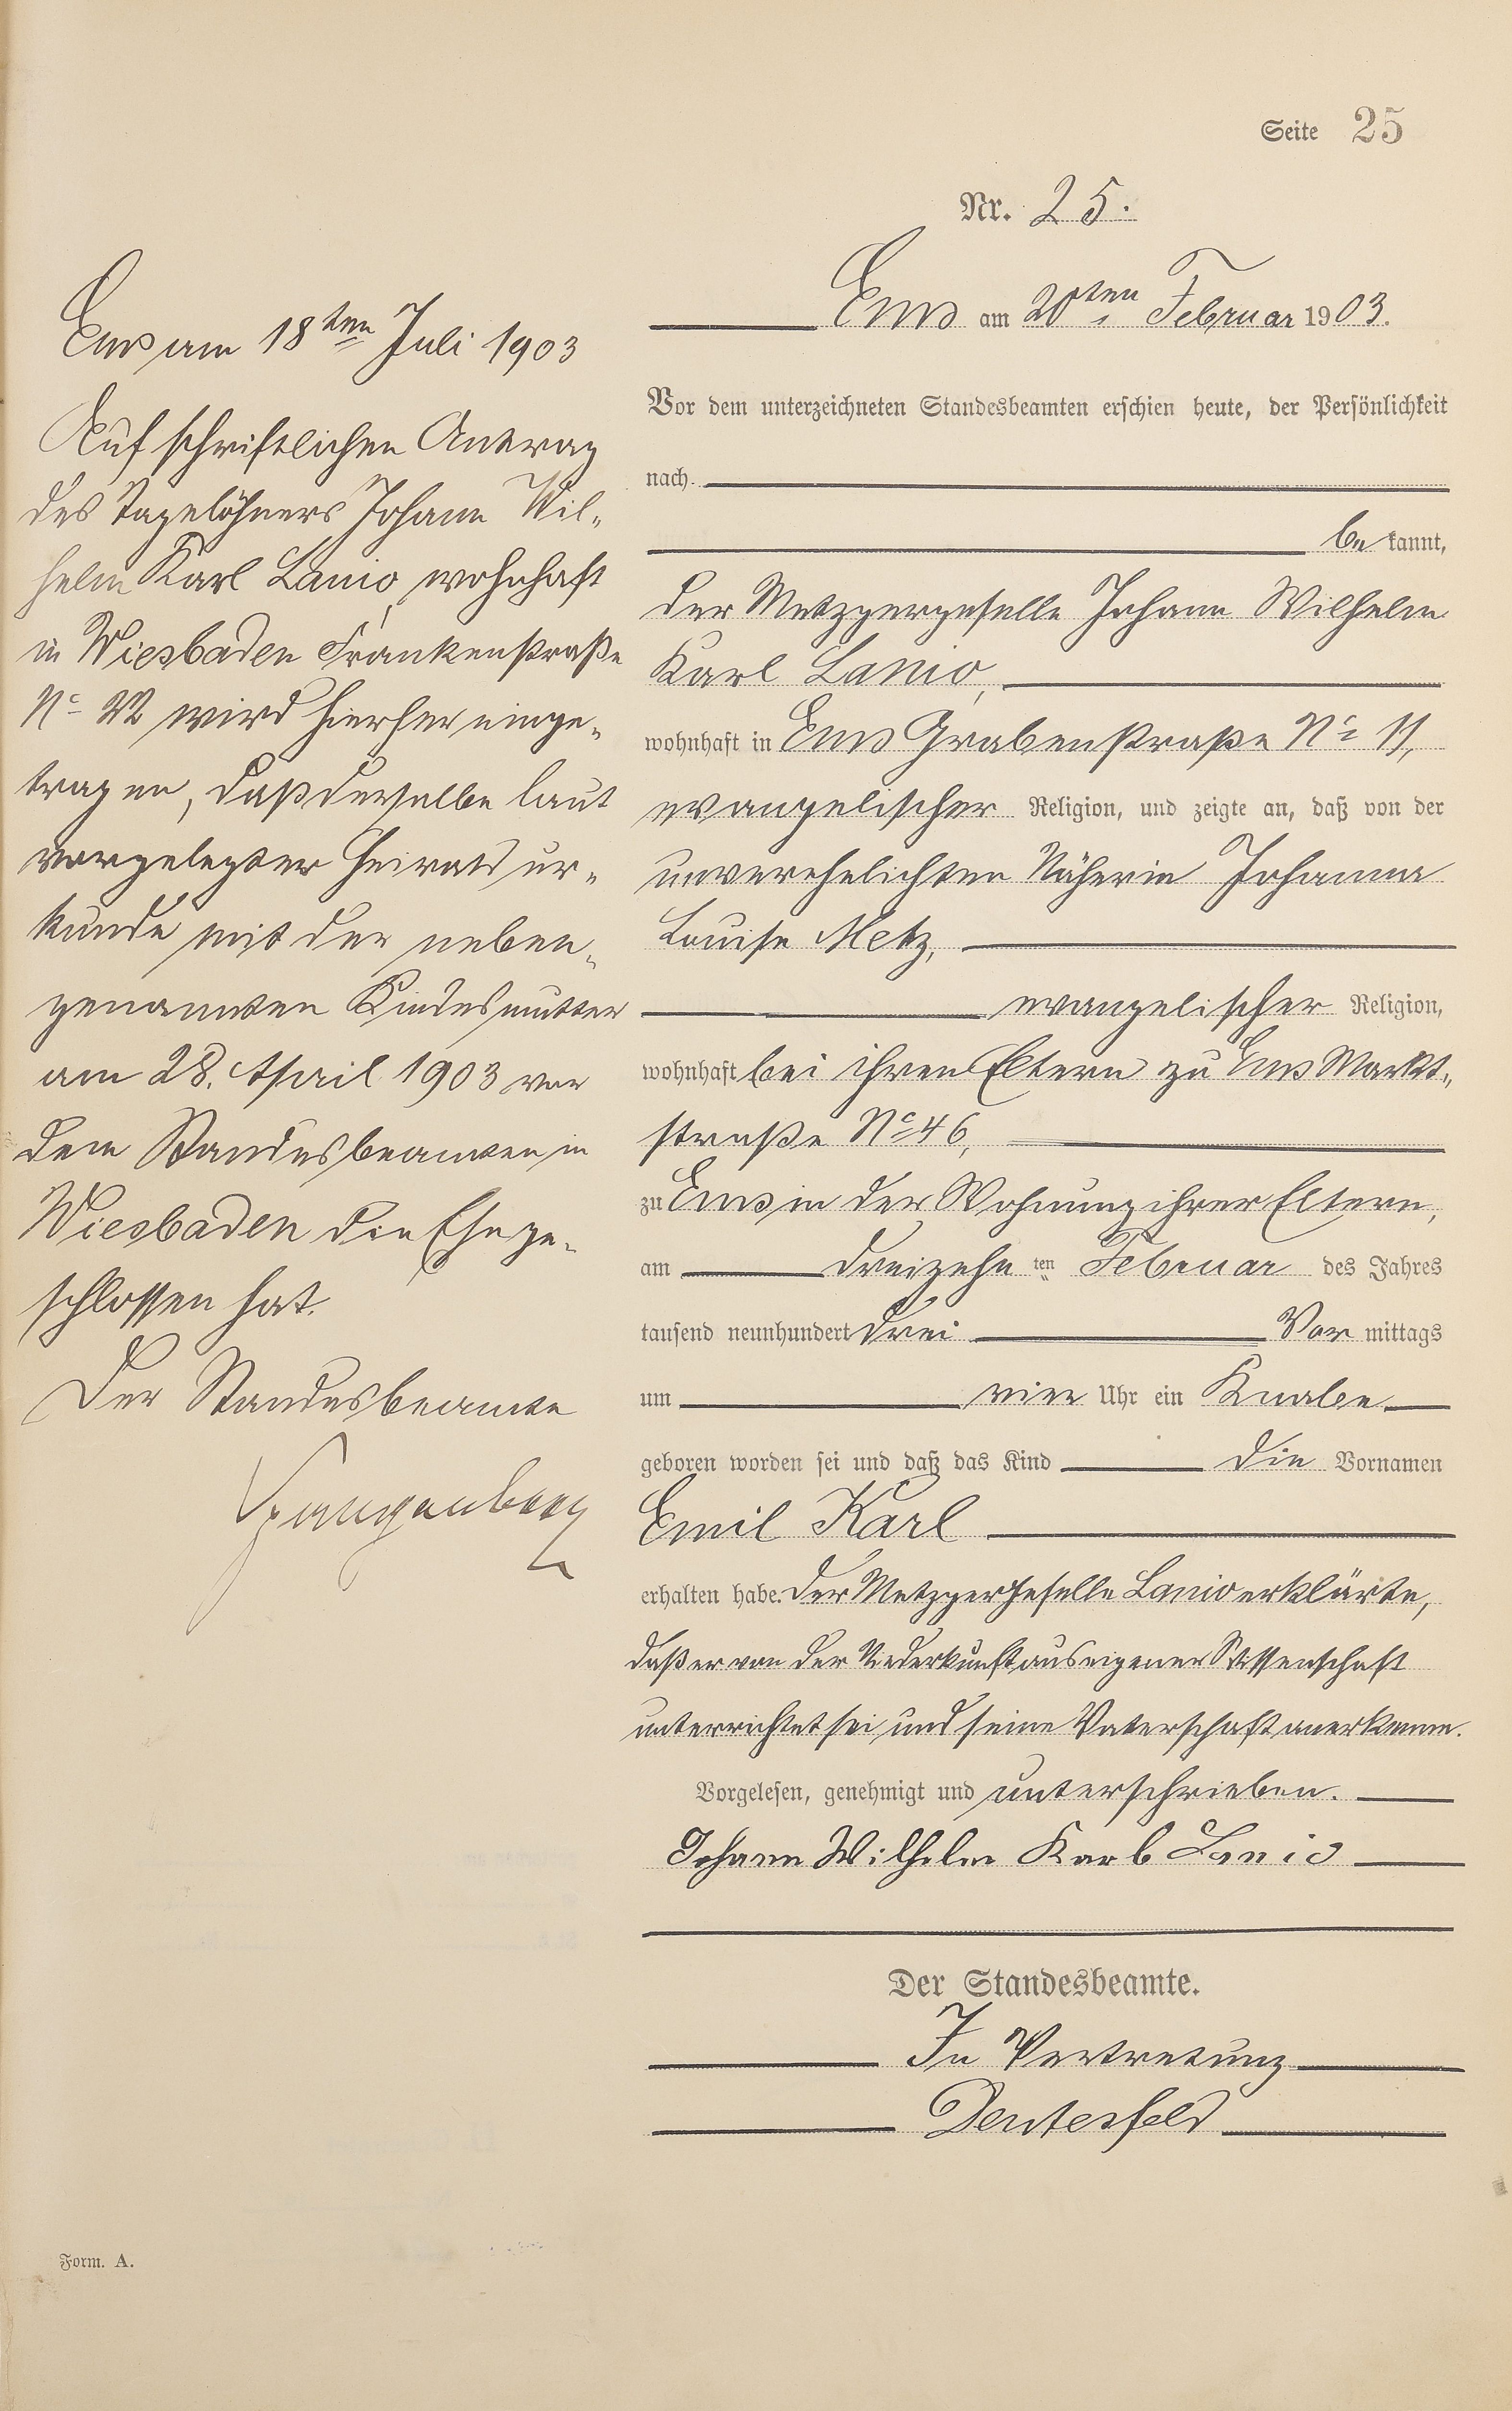 Seite 25
Nr. 25.
Ems am 20ten Februar 1903.
Vor dem unterzeichneten Standesbeamten erschien heute, der Persönlichkeit
nach
be kannt,
der Metzgergeselle Johann Wilhelm
Karl Lanio,
wohnhaft in Ems Grabenstraße No 11,
evangelischer Religion, und zeigte an, daß von der
unverehelichten Näherin Johanna
Louise Metz,
evangelischer Religion,
wohnhaft bei ihren Eltern zu Ems Markt-
straße No 46,
zu Ems in der Wohnung ihrer Eltern,
am dreizehn ten Februar des Jahres
tausend neunhundert drei Vor mittags
um vier Uhr ein Knabe
geboren worden sei und daß das Kind die Vornamen
Emil Karl
erhalten habe. Der Metzgergeselle Lanio erklärte,
daß er von der Niederkunft aus eigener Wissenschaft
unterrichtet sei und seine Vaterschaft anerkenne.
Vorgelesen, genehmigt und unterschrieben.
Johann Wilhelm Karl Lanio
Der Standesbeamte.
In Vertretung
Ems am 18ten Juli 1903
Auf schriftlichen Antrag
des Tagelöhners Johann Wil-
helm Karl Lanio, wohnhaft
in Wiesbaden Frankenstraße
No wird hierher einge-
tragen, daß derselbe laut
vorgelegter Heiratsur-
kunde mit der neben-
genannten Kindesmutter
am 28. April 1903 vor
dem Standesbeamten in
Wiesbaden die Ehe ge-
schlossen hat.
Der Standesbeamte
Form. A.